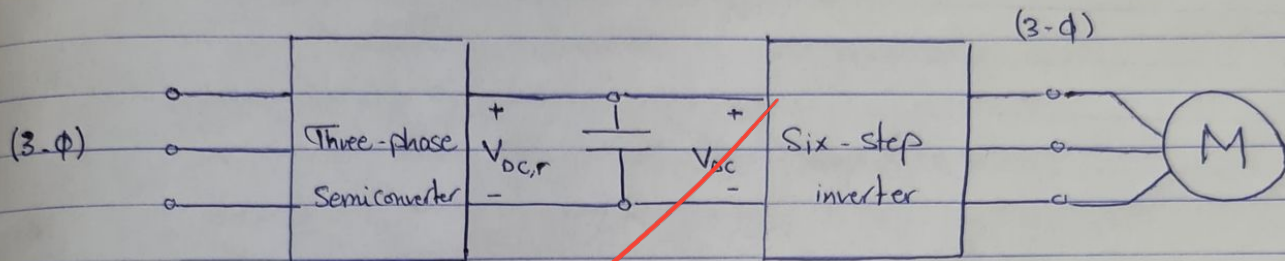 (3-ϕ)
(3-ϕ)
Three-phase
Semiconverter
+
V_DC,r
-
+
V_DC
-
Six-step
inverter
M